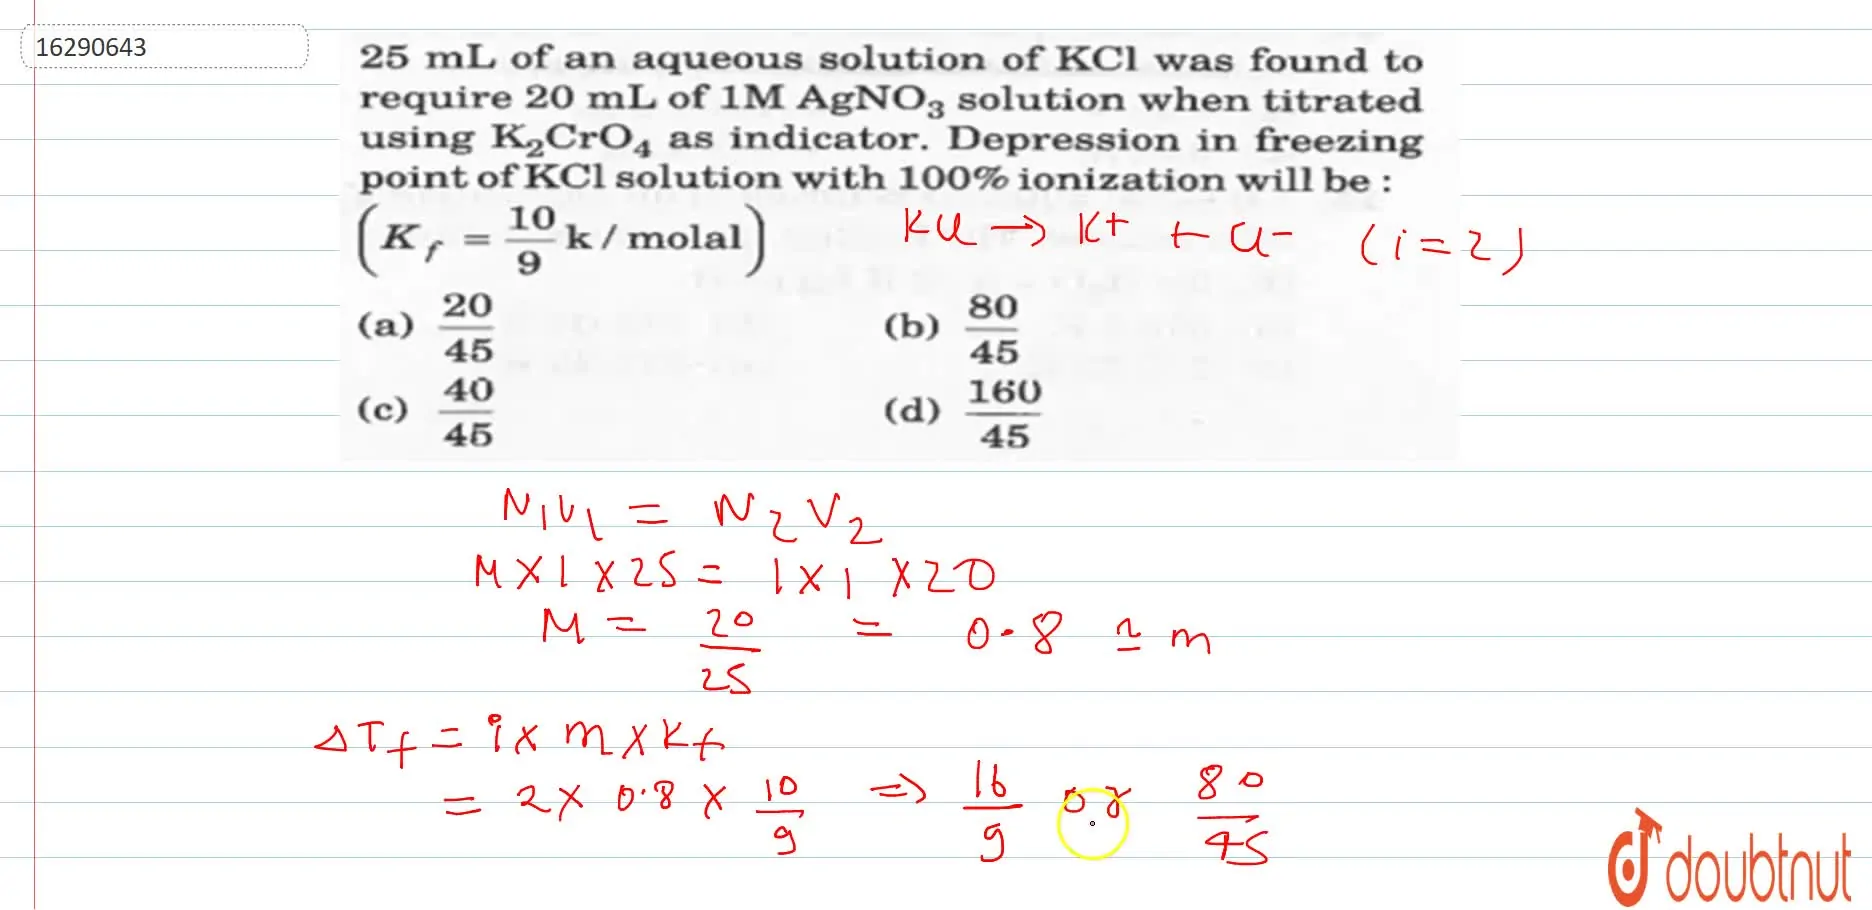 16290643
25 mL of an aqueous solution of KCl was found to
require 20 mL of 1M AgNO₃ solution when titrated
using K₂CrO₄ as indicator. Depression in freezing
point of KCl solution with 100% ionization will be :
(K_f = 10/9 k / molal)
KCl → K+ + Cl- (i = 2)
(a) 20/45 (b) 80/45
(c) 40/45 (d) 160/45
N₁V₁ = N₂V₂
M × 1 × 25 = 1 × 1 × 20
M = 20/25 = 0.8 ≃ m
ΔT_f = i × m × K_f
= 2 × 0.8 × 10/9 ⇒ 16/9 or 80/45
doubtnut